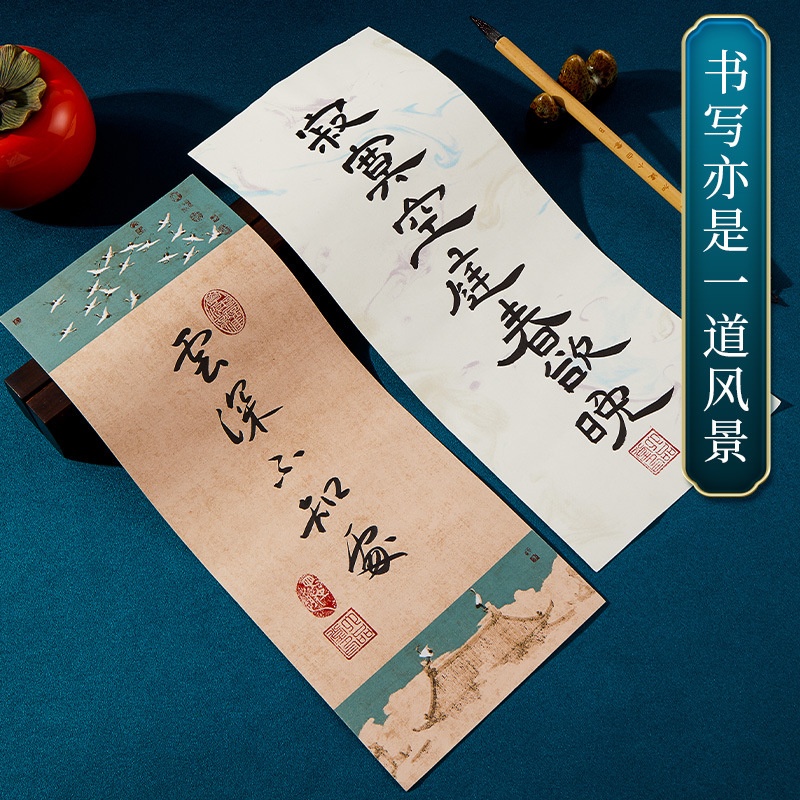 书写亦是一道风景
寂寞空庭春欲晚
雲深不知處